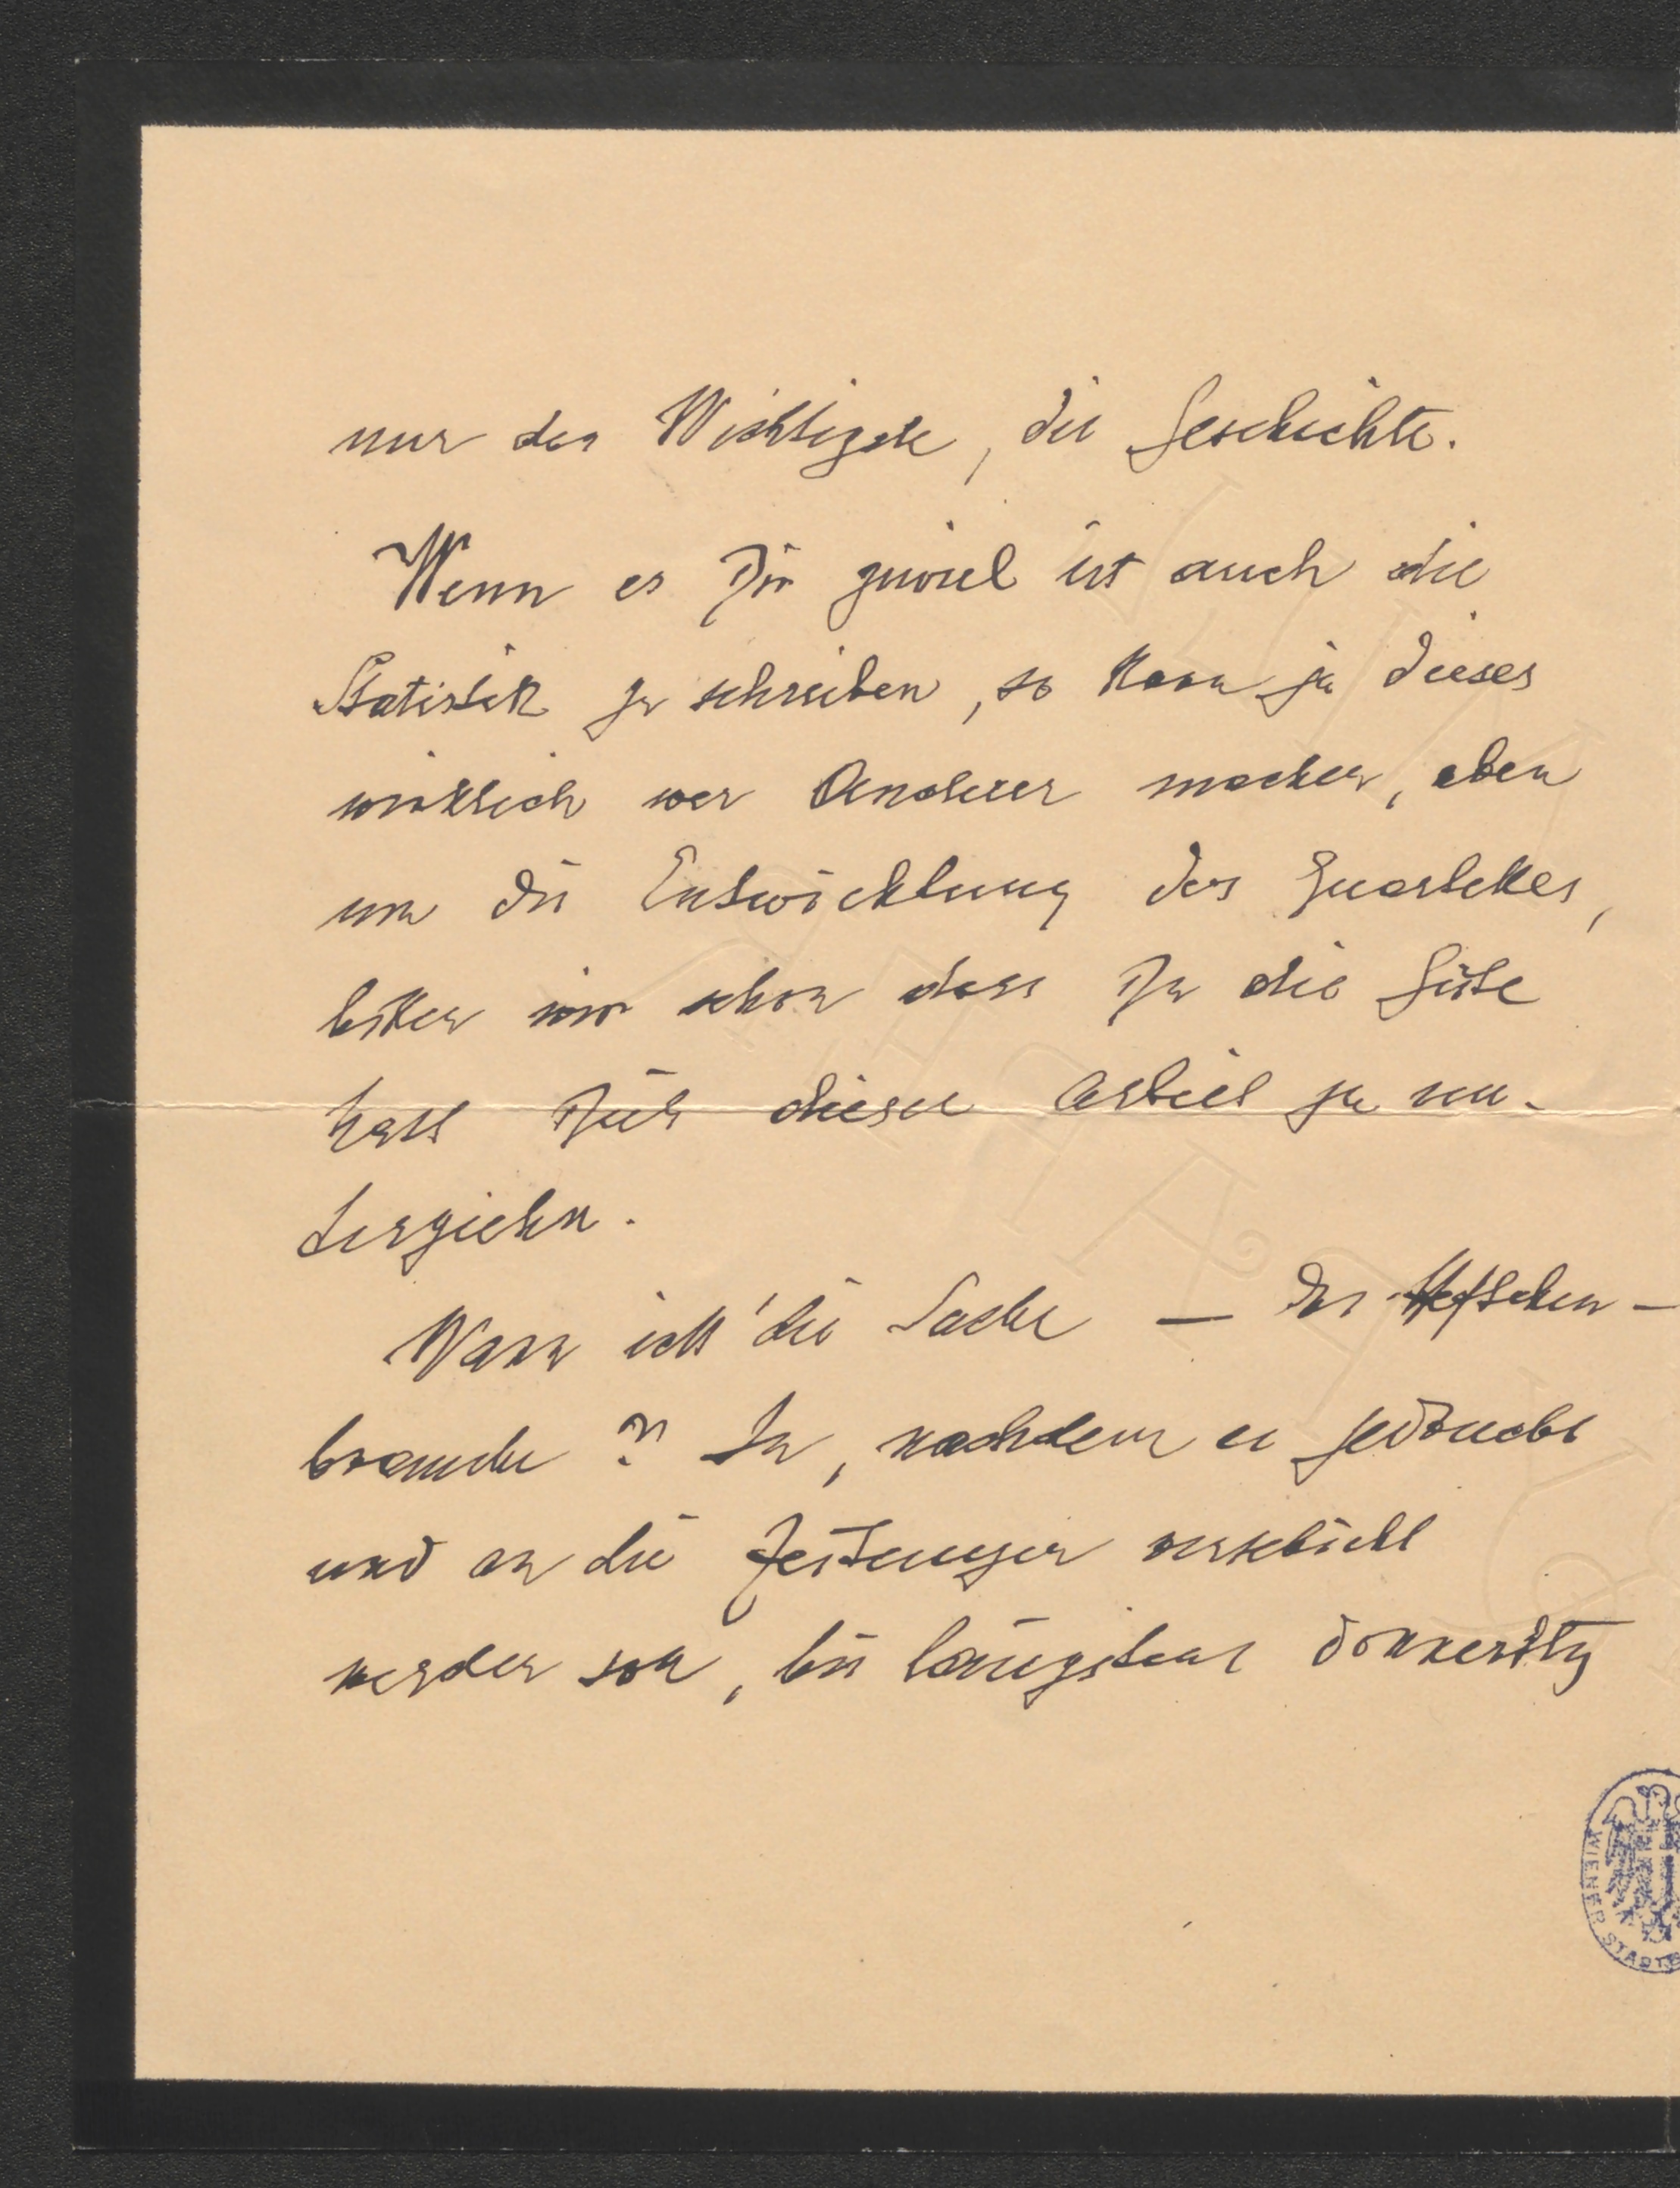 nur das Wichtigste, die Geschichte.
Wenn es Dir zuviel ist auch die
Statistik zu schreiben, so kann ja dieses
wirklich wer Anderer machen, aben
um die Entwicklung des Quartettes,
bitten wir schon dass Du die Güte
hast Dich dieser Arbeit zu un-
terziehn.
Wann ich die Sache – das Heftchen –
brauche? Ja, nachdem es gedruckt
und an die Zeitungen verschickt
werden soll, bis längstens Donnerstg
WIENER STADT